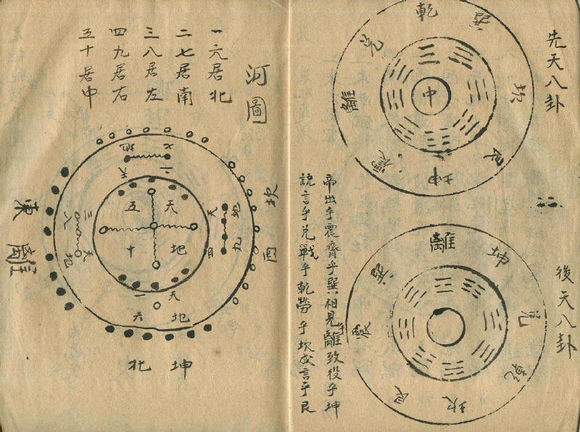 先天八卦
乾
巽
坎
艮
坤
震
離
兌
中
二
後天八卦
離
坤
兌
乾
坎
艮
震
巽
帝出乎震齊乎巽相見乎離致役乎坤
說言乎兌戰乎乾勞乎坎成言乎艮
河圖
一六居北
二七居南
三八居左
四九居右
五十居中
坎
西
東
南
離
坤
北
天五
地十
地
七
地
九
天
三八
地
天一
地六